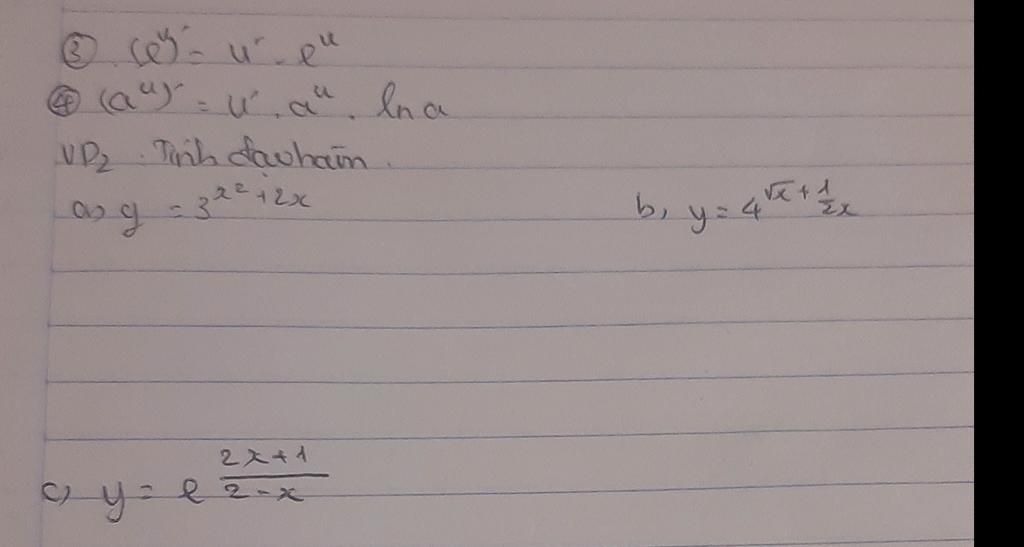 ③ (e^u)' = u' . e^u
④ (a^u)' = u' . a^u . ln a
VD2. Tính đạo hàm.
a) y = 3^{x^2+2x} b, y = 4^{√x + \frac{1}{2}x}
c) y = e^{\frac{2x+1}{2-x}}